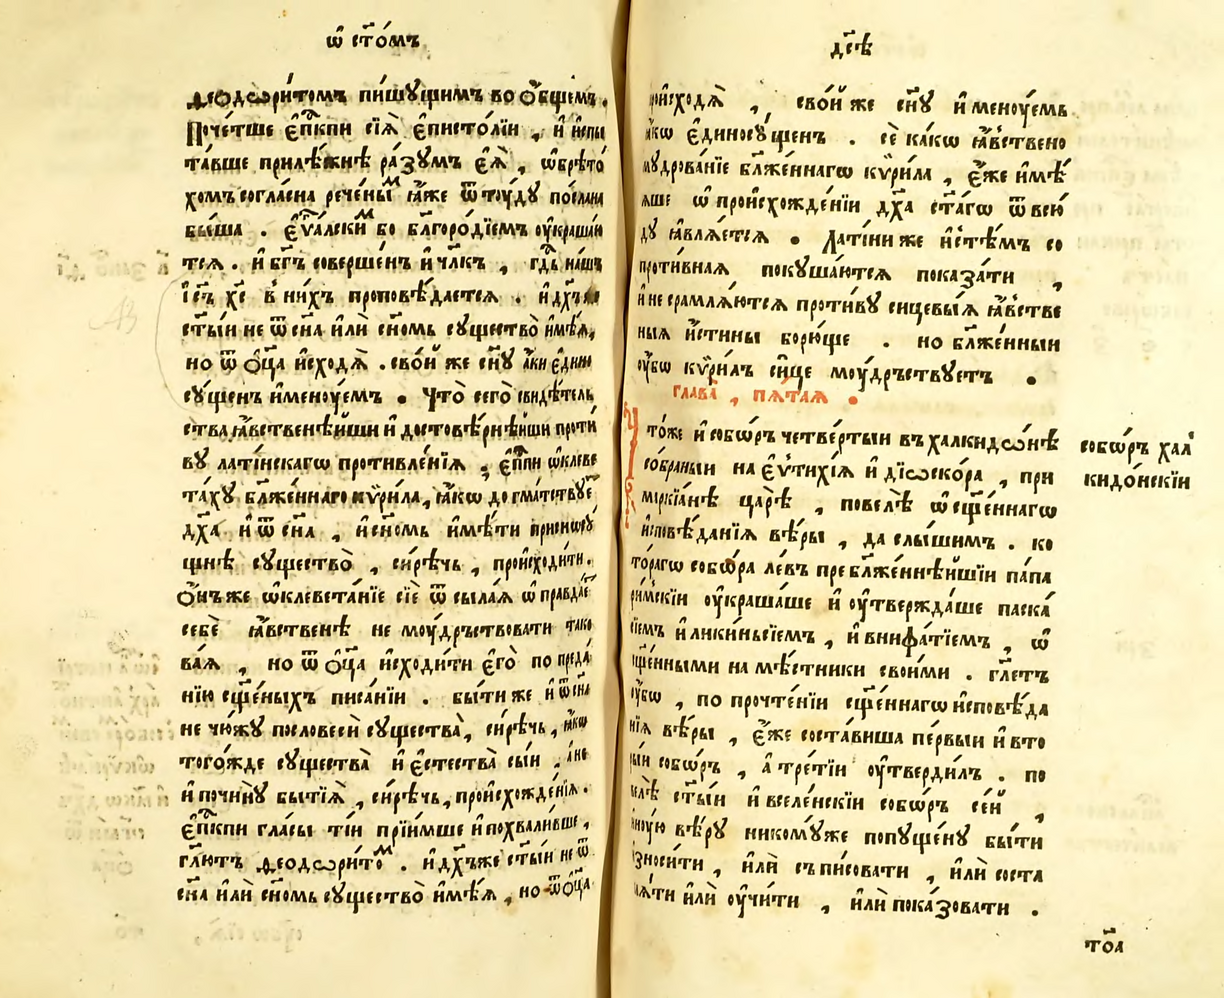 ѡ҆ ст҃о́мъ
Ѳеодѡри́томъ пи́шущимъ во ѻ҆́бщемъ.
Поче́тше є҆пⷭ҇кпи сїѧ̀ є҆писто́лїи , и҆ и҆спы
та́вше прилѣ́жнѣ ра́зумъ є҆ѧ̀ , ѡ҆брѣто́
хомъ согла́сна рече́ныⷨ ꙗ҆́же ѿтꙋ́ду по́слана
бы́ша . є҆ѵⷢ҇а́лскиⷨ бо бл҃горо́дїемъ оу҆краша́и
тсѧ . и҆ бг҃ъ соверше́нъ и҆ чл҃къ , гдⷭ҇ь на́шъ
і҆с҃ъ хс҃ в ни́хъ проповѣ́дается . и҆ дх҃ъ же
ст҃ы́и не ѿ сн҃а и҆лѝ сн҃омь существо̀ и҆мѣ́ѧ,
но ѿ ѻ҆ц҃а и҆сходѧ̀ . сво́й же сн҃у а҆́ки є҆дино
су́щенъ и҆менꙋ́емъ . Что̀ сего̀ свидѣ́тель
ства ꙗ҆́вственѣйши и҆ достовѣ́рнѣйши проти́
ву лати́нскагѡ противле́нїѧ . є҆пⷭ҇пи ѡ҆клеве
та́ху бл҃же́ннаго кѷри́ла , ꙗ҆́кѡ догма́тствуеⷮ
дх҃а и҆ ѿ сн҃а , и҆ сн҃омь и҆мѣ́ти присносꙋ́
щнѣ существо̀ , си́рѣчь , происходи́ти.
Ѻ҆́нъ же ѡ҆клевета́нїе сїѐ ѿсыла́ѧ ѡ҆правда́еⷮ
себѐ ꙗ҆́вственѣ не мꙋ́дръствовати тако
ва́ѧ , но ѿ ѻ҆ц҃а и҆сходи́ти є҆го̀ по преда́
нїю сщ҃е́ныхъ писа́нїи . бы́ти же и҆ ѿ сн҃а
не чю́жу пословесѝ существа̀ , си́рѣчь , ꙗ҆́кѡ
того́жде существа̀ и҆ є҆стества̀ сы́и , а҆ не
и҆ почи́ну бытїѧ̀ , си́рѣчь , происхожде́нїѧ .
є҆пⷭ҇кпи гла́сы ті́и прїи́мше и҆ похвали́вше ,
гл҃ютъ Ѳеодѡри́тоⷨ . и҆ дх҃ъ же ст҃ы́и не ѿ
сн҃а и҆лѝ сн҃омь существо̀ и҆мѣ́ѧ , но ѿ ѻ҆ц҃а
дс҃ѣ
происходѧ̀ , сво́й же сн҃у и҆менꙋ́емъ
ꙗ҆́кѡ є҆диносу́щенъ . сѐ ка́кѡ ꙗ҆́вствено
мудрова́нїе бл҃же́ннагѡ кѷри́ла , є҆́же и҆мѣ́
ѧше ѡ҆ происхожде́нїи дх҃а ст҃а́гѡ ѿвсю́
ду ꙗ҆влѧ́ется . Лати́ни же и҆ сѣ́мъ со
проти́внаѧ покуша́ются показа́ти ,
и҆ не срамлѧ́ются проти́ву сицевы́ѧ ꙗ҆́встве
ныѧ и҆́стины борю́ще . но бл҃же́нныи
оу҆́бѡ кѷри́лъ си́це мꙋ́дръствуетъ .
глава̀ , пѧ́таѧ .
Что́же и҆ собѡ́ръ четве́ртыи въ халкидѡ́нѣ
со́браныи на є҆ѵтихі́ѧ и҆ дїѡско́ра , при
маркїа́нѣ царѣ̀ , повелѣ̀ ѡ҆ сщ҃е́ннагѡ
и҆сповѣ́данїѧ вѣ́ры , да слы́шимъ . ко
то́рагѡ собѡ́ра ле́въ пребл҃же́ннѣйшїи па́па
ри́мскїи оу҆краша́ше и҆ оу҆твержда́ше паска́
сїемъ и҆ лики́ньсїемъ , и҆ внифа́тїемъ , ѡ҆
сщ҃е́нными намѣ́стники свои́ми . гл҃етъ
оу҆́бѡ , по прочте́нїи сщ҃е́ннагѡ и҆сповѣ́да
нїѧ вѣ́ры , є҆́же соста́виша пе́рвыи и҆ вто
ры́и собѡ́ръ , а҆ тре́тїи оу҆тверди́лъ . по
велѣ̀ ст҃ы́и и҆ вселе́нскїи собѡ́ръ се́й ,
и҆нꙋ́ю вѣ́ру никому́же попуще́ну бы́ти
износи́ти , и҆лѝ съписовати , и҆лѝ соста
влѧ́ти и҆лѝ оу҆чи́ти , и҆лѝ пока́зовати .
собѡ́ръ хал
кидо́нскїи
то҃а